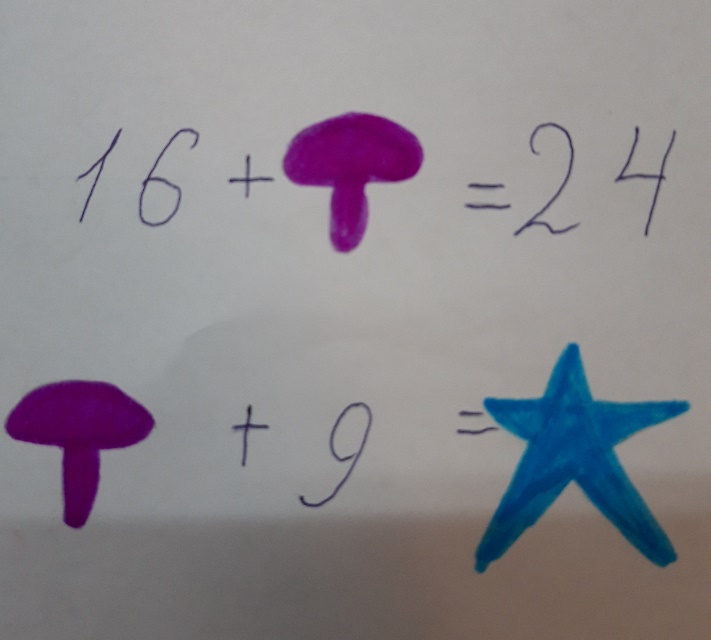 16 + = 24
+ 9 =